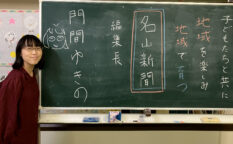 子どもたちと共に
地域を楽しみ
地域で育つ
名山新聞
編集長
門間ゆきの